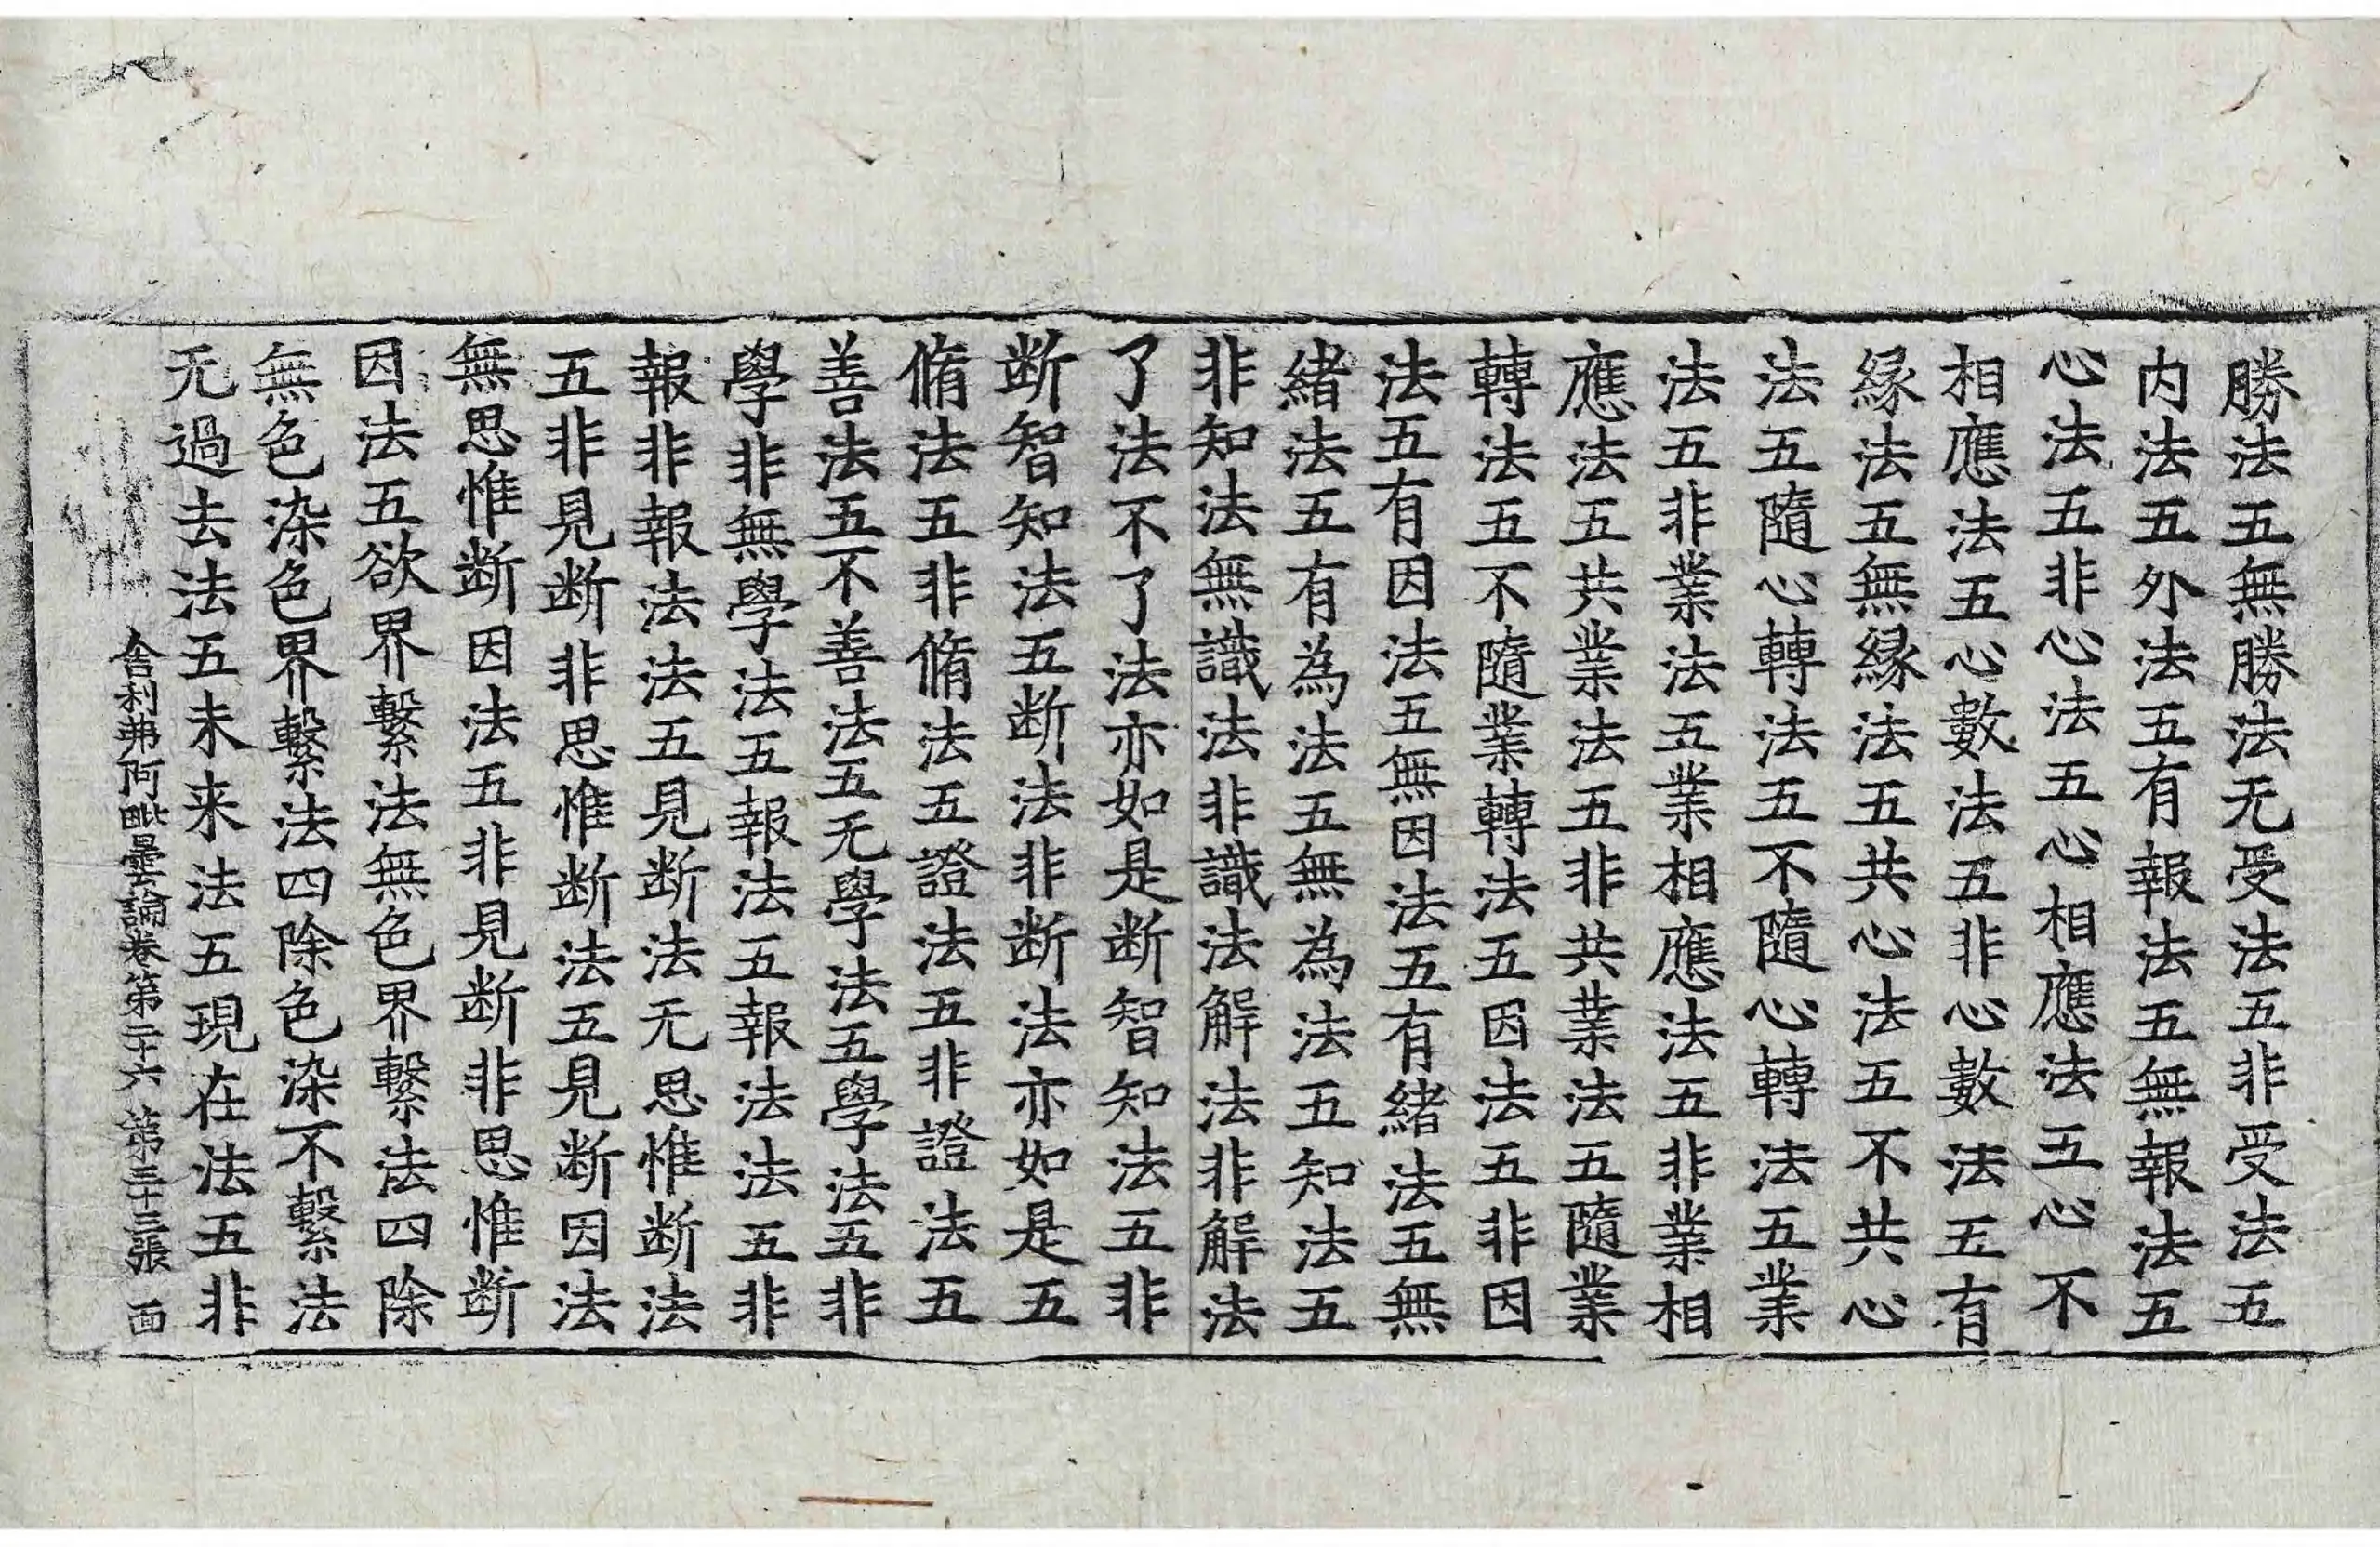 勝法五無勝法无受法五非受法五
内法五外法五有報法五無報法五
心法五非心法五心相應法五心不
相應法五心數法五非心數法五有
緣法五無緣法五共心法五不共心
法五隨心轉法五不隨心轉法五業
法五非業法五業相應法五非業相
應法五共業法五非共業法五隨業
轉法五不隨業轉法五因法五非因
法五有因法五無因法五有緒法五無
緒法五有為法五無為法五知法五
非知法無識法非識法解法非解法
了法不了法亦如是断智知法五非
断智知法五断法非断法亦如是五
脩法五非脩法五證法五非證法五
善法五不善法五无學法五學法五非
學非無學法五報法五報法法五非
報非報法法五見断法无思惟断法
五非見断非思惟断法五見断因法
無思惟断因法五非見断非思惟断
因法五欲界繫法無色界繫法四除
無色染色界繫法四除色染不繫法
无過去法五未来法五現在法五非
舍利弗阿毗曇論卷第二十六 第三十三張 面